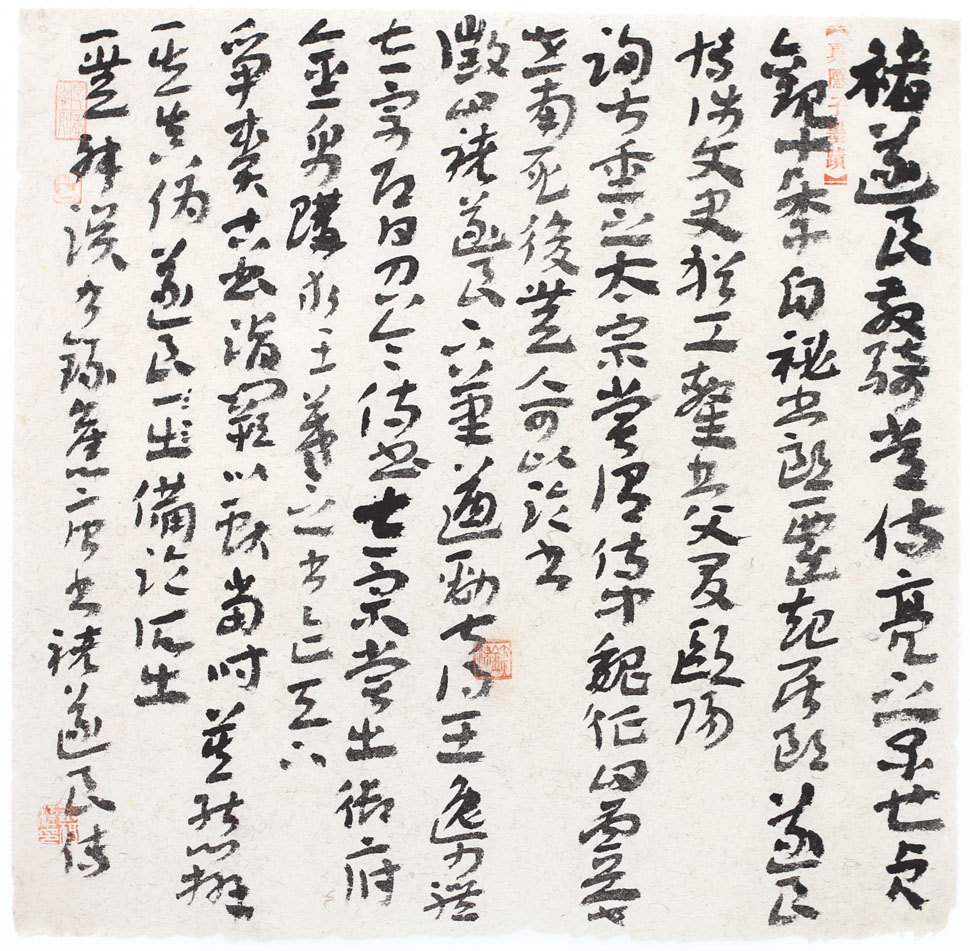 褚遂良散騎常侍亮之子也貞
觀十年自秘書郎遷起居郎遂良
博涉文史猶工隸書父友歐陽
詢甚重之太宗嘗謂侍中魏徵曰虞
世南死後無人可以論書
徵曰褚遂良下筆遒勁甚得王逸少體
太宗即日召令侍書太宗嘗出御府
金帛購求王羲之書迹天下
爭賫古書詣闕以獻當時莫能辨
其真偽遂良一一備論所出
一無舛誤 錄舊唐書褚遂良傳